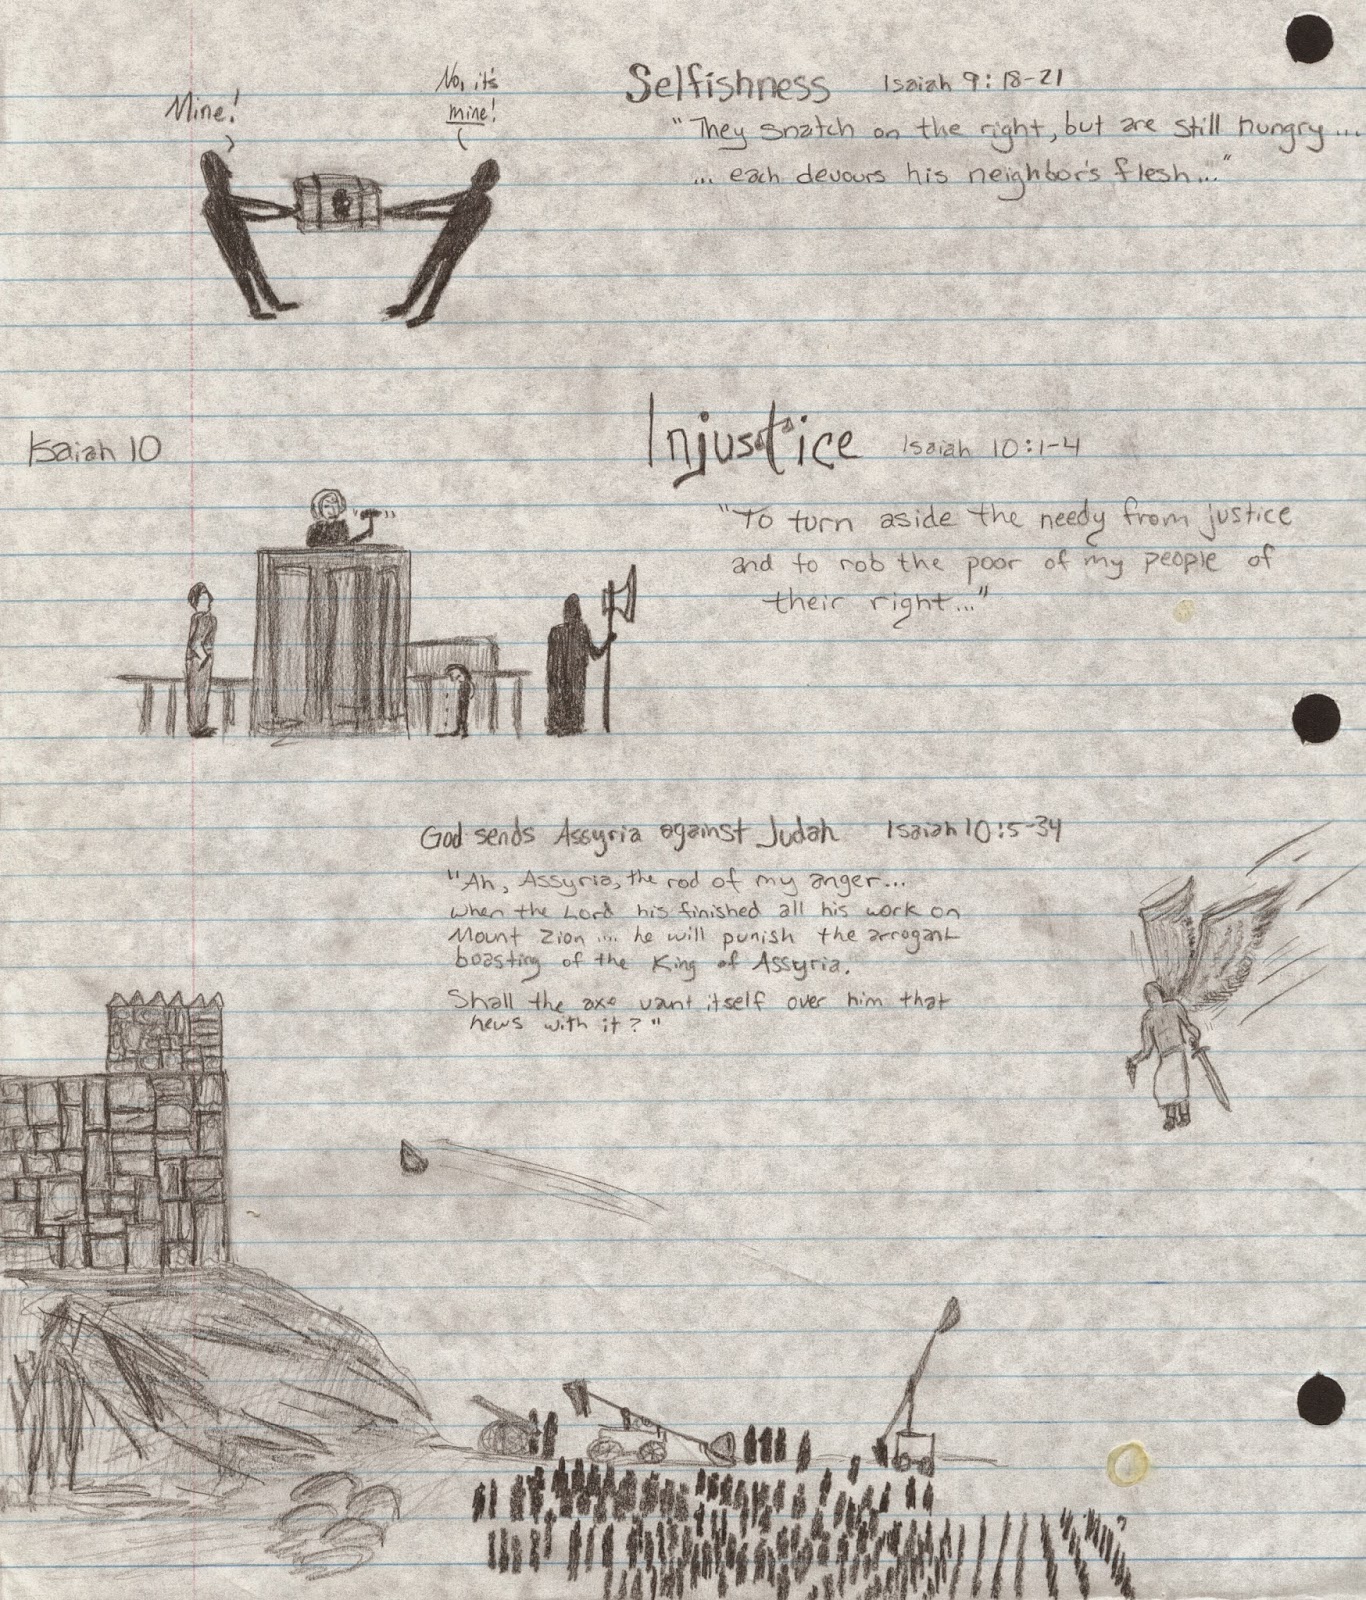 Mine!
No, it's
mine!
Selfishness Isaiah 9:18-21
"They snatch on the right, but are still hungry...
... each devours his neighbor's flesh..."
Isaiah 10
Injustice Isaiah 10:1-4
"To turn aside the needy from justice
and to rob the poor of my people of
their right..."
God sends Assyria against Judah Isaiah 10:5-34
"Ah, Assyria, the rod of my anger...
when the Lord his finished all his work on
Mount Zion .... he will punish the arrogant
boasting of the King of Assyria.
Shall the axe vant itself over him that
hews with it?"